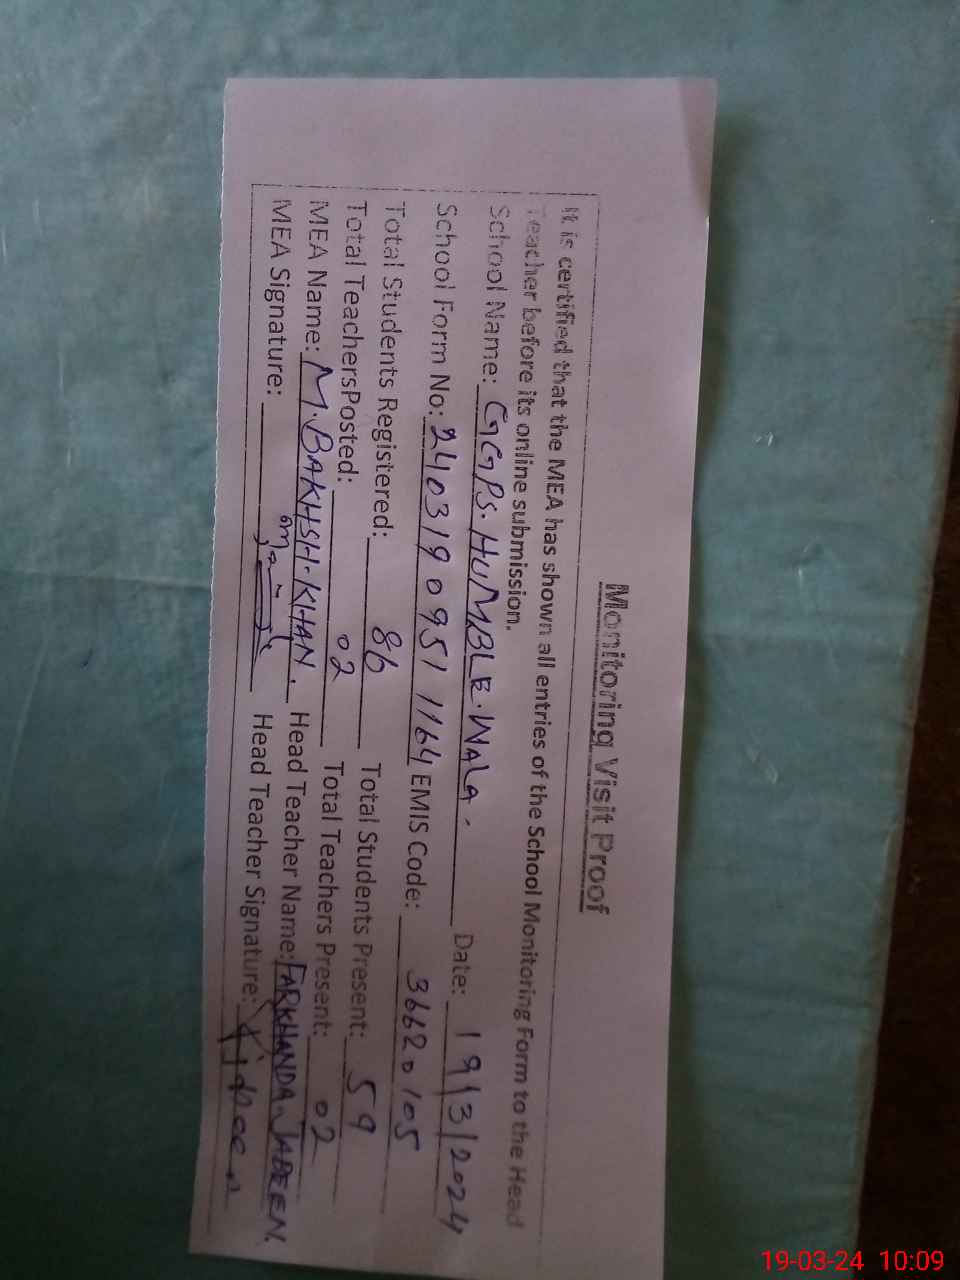 Monitoring Visit Proof
It is certified that the MEA has shown all entries of the School Monitoring Form to the Head
Teacher before its online submission.
School Name: GGPS. HUMBLE. WALA. Date: 19/3/2024
School Form No: 240319 0951 1164 EMIS Code: 36620105
Total Students Registered: 86 Total Students Present: 59
Total Teachers Posted: 02 Total Teachers Present: 02
MEA Name: M. BAKHSH. KHAN. Head Teacher Name: FARKHANDA. JABEEN.
MEA Signature: Head Teacher Signature:
19-03-24 10:09